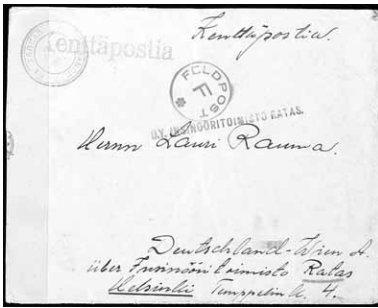 Kenttäpostia
Kenttäpostia.
FELDPOST
F
O.Y. INSINÖÖRITOIMISTO RATAS.
Herrn Lauri Rauma.
Deutschland-Wien
über Insinööritoimisto Ratas
Helsinki Temppelik. 4.